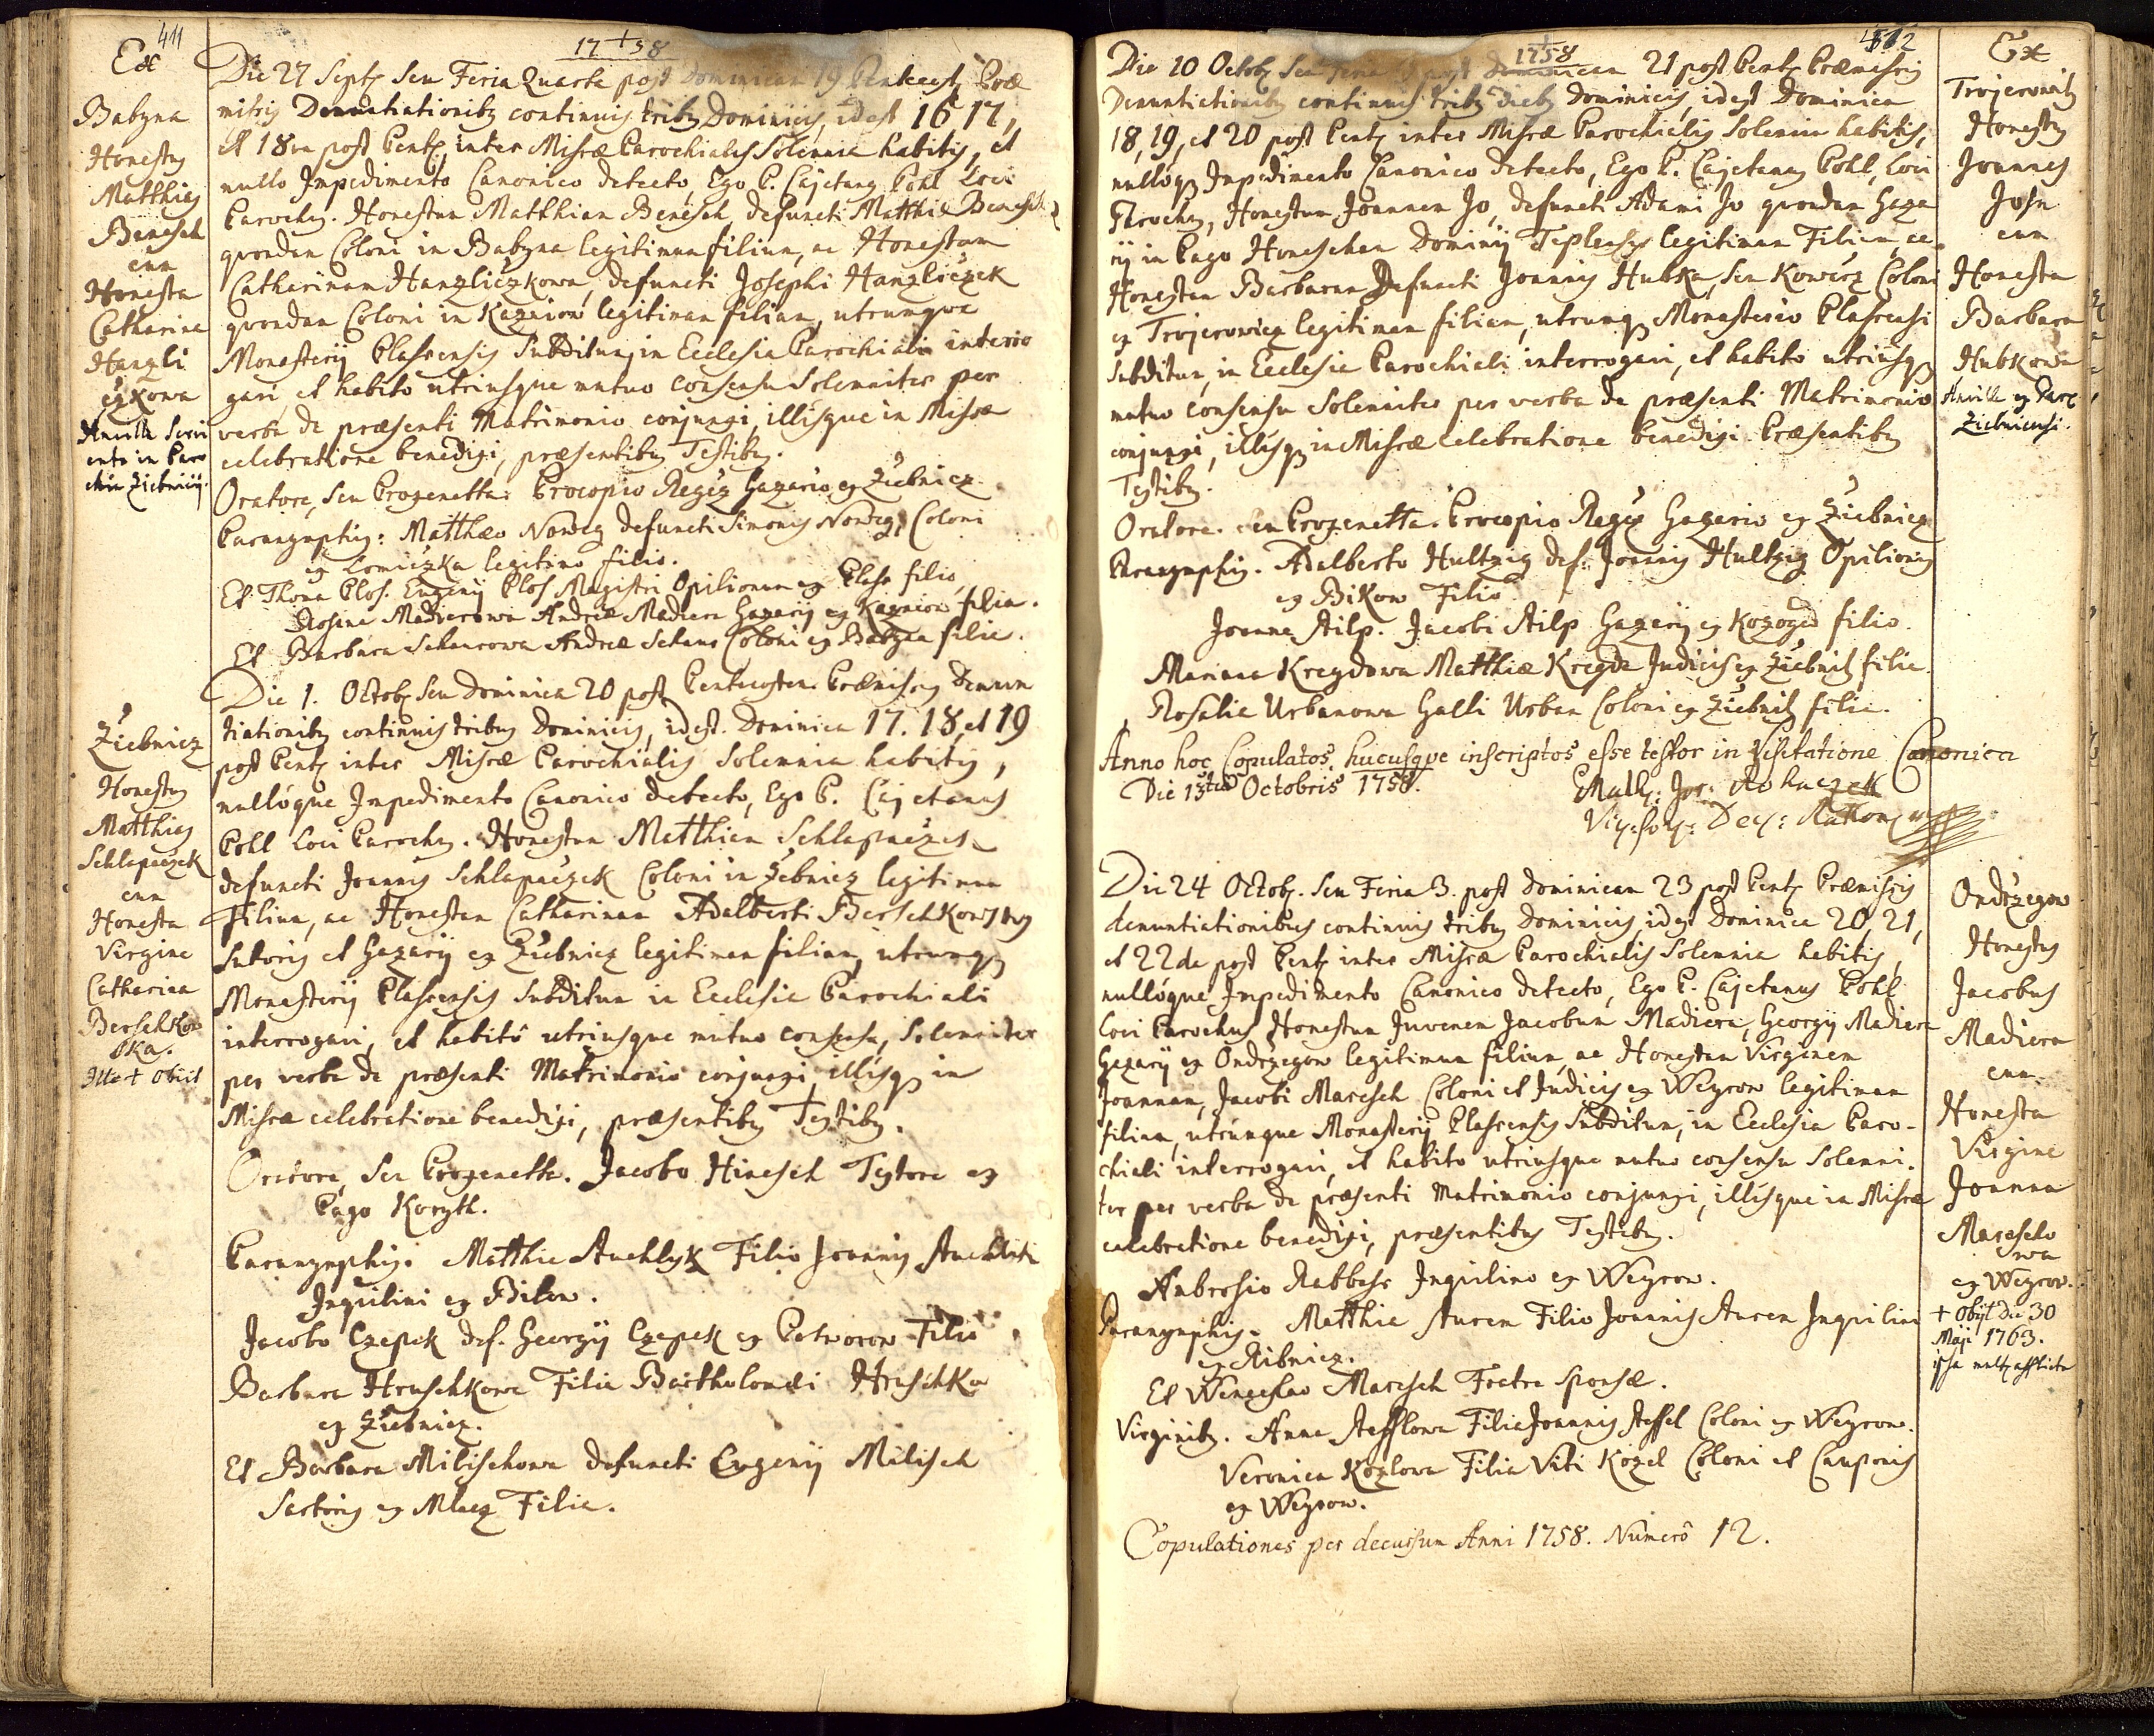 411
17+58
Ex
Babzna
Honestus
Matthias
Benesch
cum
Honesta
Catharina
Hanzli
czkowa
Ancilla Servi
ente in Paro
chia Ziebnicij.
Die 27 Septb Seu Feria Quarta post Dominicam 19 Pentecost, Præ
missis Denuntiationibus continuis tribus Dominicis, idest 16 17,
et 18va post Pent, inter Missæ Parochiales Solennia habitis, et
nullo Impedimento Canonico detecto, Ego P. Cajetanus Pohl Loci
Parochus. Honestum Matthiam Benesch, defuncti Matthiæ Benesch
quondam Coloni in Babzna legitimum filium, ac Honestam
Catharinam Hanzliczkowa, defuncti Josephi Hanzliczek
quondam Coloni in Kaznion legitimam filiam, utrumque
Monasterij Plassensis Subditum in Ecclesia Parochiali interro
gavi et habito utriusque mutuo consensu Solenniter per
verba de præsenti Matrimonio conjunxi illisque in Missæ
celebratione benedixi, præsentibus Testibus.
Oratore, seu Proxenetta: Procopio Regiz Gazario ex Ziebnicz
Paranymphis: Matthæo Nowey defuncti Simonis Nowey, Coloni
ex Lomiczka legitimo filio.
Et Thoma Plos. Eugenij Plos Magistri Opilionum ex Plass filio,
Rosina Madierowa Andreæ Madiera Gazarij ex Kaznion filia.
Et Barbara Schaurowa Andreæ Schaur Coloni ex Babzna filia.
Ziebnicz
Honestus
Matthias
Schlapaczek
cum
Honesta
Virgine
Catharina
Berschkow
ska.
Ille + obiit
Die 1. Octob Seu Dominica 20 post Pentecosten. Præmissis Denun
tiationibus continuis tribus Dominicis, idest. Dominica 17. 18, et 19
post Pent inter Missæ Parochialis Solennia habitis,
nullóque Impedimento Canonico detecto, Ego P. Cajetanus
Pohl Loci Parochus. Honestum Matthiam Schlapaczek
defuncti Joannis Schlapaczek Coloni in Zebnicz legitimum
Filium, ac Honestam Catharinam Adalberti Berschkowsky
Sutoris et Gazarij ex Ziebnicz legitimam filiam, utrumque
Monasterij Plassensis Subditum in Ecclesia Parochiali
interrogavi, et habitô utriusque mutuo consensu, Solenniter
per verba de præsenti Matrimonio conjunxi, illisque in
Missæ celebratione benedixi, præsentibus Testibus.
Oratore, seu Proxenetta. Jacobo Hinesch Textore ex
Pago Koryth.
Paranymphis. Matthia Suchlyk Filio Joannis
Inquilini ex Bilow.
Jacobo Czepek def. Georgij Czepek ex Potworow Filio
Barbara Hruschkowa Filia Bartholomæi Hruschka
ex Ziebnicz.
Et Barbara Milischowa defuncti Eugenij Milisch
Sartoris ex Mlacz Filia.
1758
Die 10 Octob Seu Feria post Dominicam 21 post Pent Præmissis
Denuntiationibus continuis tribus diebus Dominicis, idest Dominica
18, 19, et 20 post Pent inter Missæ Parochialis Solennia habitis,
nullóque Impedimento Canonico detecto, Ego P. Cajetanus Pohl, Loci
Parochus, Honestum Joannem Jo, defuncti Adami Jo quondam Gaza
rij in Pago Honeschau Dominij Teplensis legitimum Filium, ac
Honestam Barbaram defuncti Joannis Hubka, seu Kowarz Coloni
ex Trojerowicz legitimam filiam, utrumque Monasterio Plassensi
Subditum, in Ecclesia Parochiali interrogavi, et habito utriusque
mutuo consensu Solenniter per verba de præsenti Matrimonio
conjunxi, illisque in Missæ celebratione benedixi. Præsentibus
Testibus.
Oratore. seu Proxenetta. Procopio Regiz Gazario ex Ziebnicz
Paranymphis. Adalberto Hultzig def. Joannis Hultzig Opilionis
ex Bikow Filio
Joanne Stilp. Jacobi Stilp Gazarij ex Kozoged filio.
Mariana Kreydowa Matthiæ Kreyda Judicis ex Ziebnitz filia.
Rosalia Urbanowa Galli Urban Coloni ex Ziebnitz filia.
Anno hoc Copulatos hucusque inscriptos esse testor in Visitatione Canonica
Die 13tia Octobris 1758.
Math: Jos: Rohaczek
Ex
Trojerowitz
Honestus
Joannes
cum
Honesta
Barbara
Hubkowa
Ancilla ex Paro
Ziebnicensi.
Die 24 Octob. Seu Feria 3. post Dominicam 23 post Pent Præmissis
denuntiationibus continuis tribus Dominicis, idest Dominica 20, 21,
et 22da post Pent inter Missæ Parochialis Solennia habitis,
nullóque Impedimento Canonico detecto, Ego P. Cajetanus Pohl
Loci Parochus Honestum Juvenem Jacobum Madiera, Georgij Madiera
Gazarij ex Ondrzegow legitimum filium, ac Honestam Virginem
Joannam, Jacobi Maresch Coloni et Judicis ex Weyrow legitimam
filiam, utrumque Monasterij Plassensis Subditum, in Ecclesia Paro-
chiali interrogavi, et habito utriusque mutuo consensu Solenni-
ter per verba de præsenti Matrimonio conjunxi, illisque in Missæ
celebratione benedixi, præsentibus Testibus.
Ambrosio Rabbass Inquilino ex Weyrow.
Paranymphis. Matthia Auren Filio Joannis Auren Inquilini
ex Ribnicz.
Et Wenceslao Maresch Fratre Sponsæ.
Virginibus. Anna Stefflowa Filia Joannis Steffel Coloni ex Weyrow.
Veronica Kozlowa Filia Viti Kozel Coloni et Cauponis
ex Weyrow.
Copulationes per decursum Anni 1758. Numerô 12.
Ondrzegow
Honestus
Jacobus
Madiera
cum
Honesta
Virgine
Joanna
Marescho
wa
ex Weyrow.
+ Obijt die 30
Maji 1763.